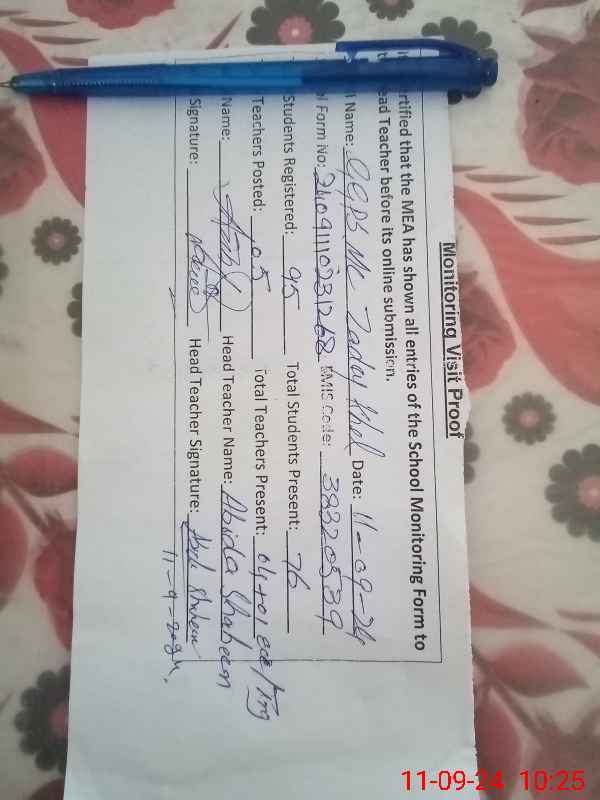 Monitoring Visit Proof
rtified that the MEA has shown all entries of the School Monitoring Form to
ead Teacher before its online submission.
l Name: GGPS Mc Zaday Khel Date: 11-09-24
l Form No: 240911023126 EMIS Code: 38320539
Students Registered: 95 Total Students Present: 76
Teachers Posted: 05 Total Teachers Present: 04+01
Name: Head Teacher Name: Abida Shaheen
Signature: Head Teacher Signature: Shaheen
11-9-2024.
11-09-24 10:25